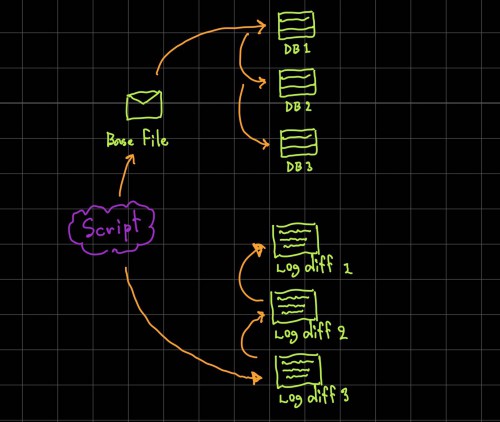 DB1
DB2
Base File
DB3
Script
Log diff 1
Log diff 2
Log diff 3